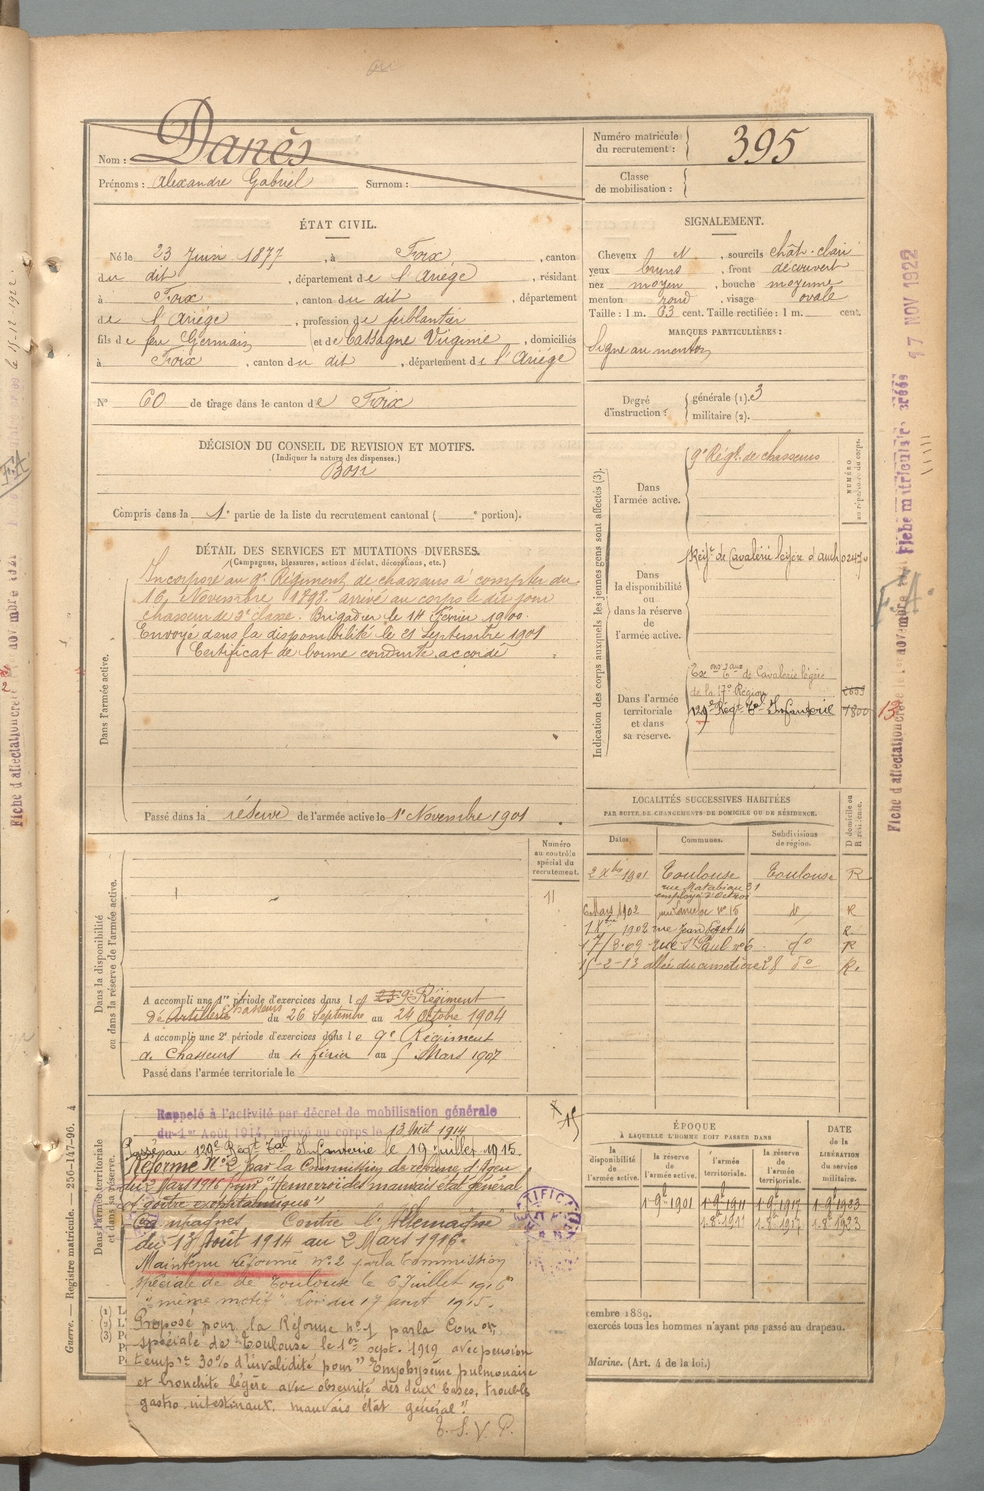 Nom : Danès
Prénoms : Alexandre Gabriel Surnom :
Numéro matricule du recrutement : 395
Classe de mobilisation :
ÉTAT CIVIL.
Né le 23 Juin 1877, à Foix, canton
du dit, département de l'Ariège, résidant
à Foix, canton du dit, département
de l'Ariège, profession de ferblantier
fils de feu Germain et de Cassagne Virginie, domiciliés
à Foix, canton du dit, département de l'Ariège
N° 60 de tirage dans le canton de Foix
SIGNALEMENT.
Cheveux N, sourcils chât-clair
yeux bruns, front découvert
nez moyen, bouche moyenne
menton rond, visage ovale
Taille : 1 m. 63 cent. Taille rectifiée : 1 m. cent.
MARQUES PARTICULIÈRES :
Signe au menton
Degré d'instruction : générale (1). 3
militaire (2).
DÉCISION DU CONSEIL DE REVISION ET MOTIFS.
(Indiquer la nature des dispenses.)
Bon
Compris dans la 1e partie de la liste du recrutement cantonal ( e portion).
DÉTAIL DES SERVICES ET MUTATIONS DIVERSES.
(Campagnes, blessures, actions d'éclat, décorations, etc.)
Dans l'armée active.
Incorporé au 9e Régiment de chasseurs à compter du
16 Novembre 1898. arrivé au corps le dit jour
chasseur de 2e classe. Brigadier le 14 Février 1900.
Envoyé dans la disponibilité le 21 Septembre 1901
Certificat de bonne conduite accordé
Passé dans la réserve de l'armée active le 1er Novembre 1901
Indication des corps auxquels les jeunes gens sont affectés (3).
NUMÉRO au répertoire du corps.
Dans l'armée active.
9e Régt. de chasseurs
Dans la disponibilité ou dans la réserve de l'armée active.
Régt. de Cavalerie légère d'Auch
Dans l'armée territoriale et dans sa réserve.
de Cavalerie légère
de la 17e Région
129e Régt Tal Infanterie
LOCALITÉS SUCCESSIVES HABITÉES
PAR SUITE DE CHANGEMENTS DE DOMICILE OU DE RÉSIDENCE.
Dates. Communes. Subdivisions de région. D domicile ou R résidence.
2 Xbre 1901 Toulouse Toulouse R
rue Matabiau 31
employé d'octroi
6 Mars 1902 n° 15 R
1902 rue Jean 14 R
17/8-09 rue St Paul n° 6 do R
15-2-13 allée du cimetière 28 do R.
Dans la disponibilité ou dans la réserve de l'armée active.
Numéro au contrôle spécial du recrutement.
11
A accompli une 1re période d'exercices dans le 9e Régiment
de Artillerie Chasseurs du 26 Septembre au 24 Octobre 1904
A accompli une 2e période d'exercices dans le 9e Régiment
de Chasseurs du 4 février au 5 Mars 1907
Passé dans l'armée territoriale le
Dans l'armée territoriale et dans sa réserve.
Rappelé à l'activité par décret de mobilisation générale
du 1er Août 1914, arrivé au corps le 13 Août 1914
Passé au 129e Regt Tal Infanterie le 19 juillet 1915.
Réformé N° 2 par la Commission de réforme d'Agen
du 2 Mars 1916 pour "Hemorroïdes mauvais état général
et goitre exophtalmique"
Campagnes Contre l'Allemagne
du 13 Août 1914 au 2 Mars 1916.
Maintenu réformé n° 2 par la Commission
spéciale de de Toulouse le 6 Juillet 1916
"même motif" Loi du 17 aout 1915.
Proposé pour la Réforme n° 1 par la Comon
spéciale de Toulouse le 1er sept. 1919 avec pension
tempre 30% d'invalidité pour "Emphysème pulmonaire
et bronchite légère avec obscurité des deux bases, troubles
gastro-intestinaux, mauvais état général".
T. S. V. P.
ÉPOQUE
À LAQUELLE L'HOMME DOIT PASSER DANS
la disponibilité de l'armée active. la réserve de l'armée active. l'armée territoriale. la réserve de l'armée territoriale.
DATE de la LIBÉRATION du service militaire.
1-9-1901 1-9-1911 1-9-1917 1-9-1923
1-8-1911 1-8-1917 1-8-1923
cembre 1889.
exercés tous les hommes n'ayant pas passé au drapeau.
Marine. (Art. 4 de la loi.)
Guerre. — Registre matricule. — 256-147-96. 4
17 NOV 1922
F.A.
13